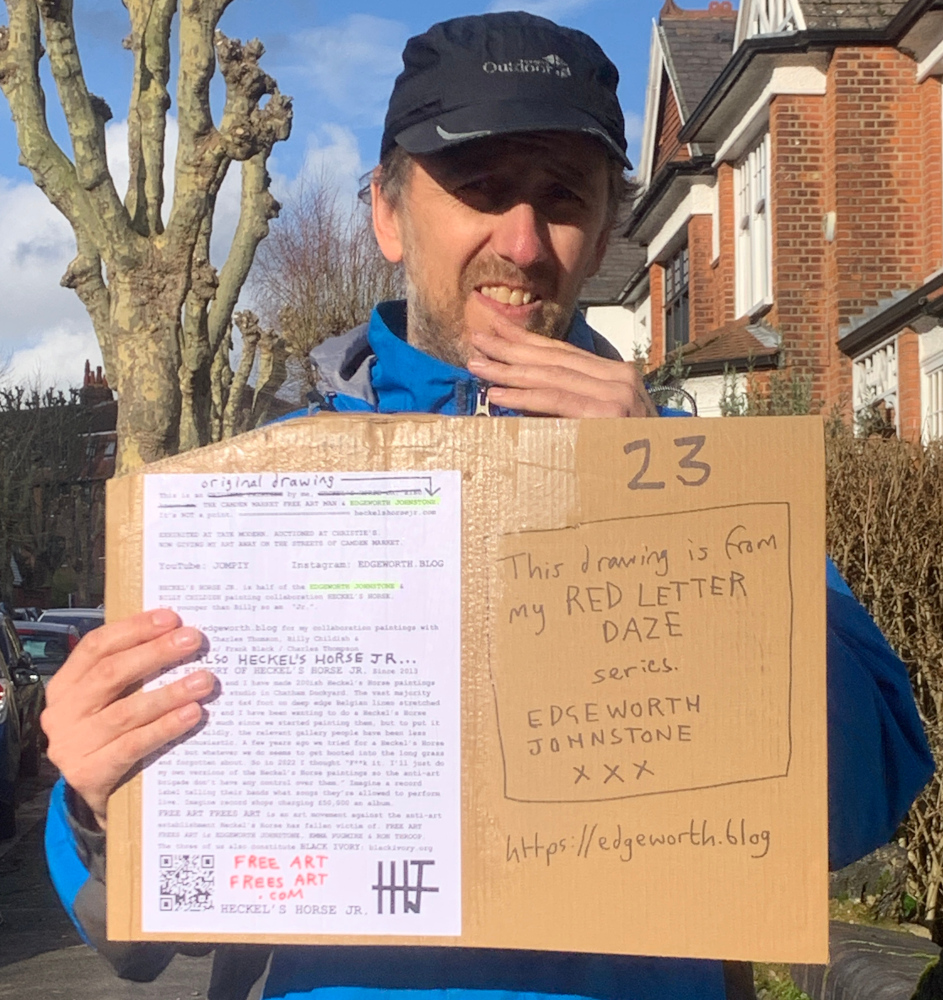 Outdoor
original drawing
This is an by me,
THE CAMDEN MARKET FREE ART MAN & EDGEWORTH JOHNSTONE.
It's NOT a point. heckelshorsejr.com
EXHIBITED AT TATE MODERN. AUCTIONED AT CHRISTIE'S.
NOW GIVING MY ART AWAY ON THE STREETS OF CAMDEN MARKET.
YouTube: JOMPIY Instagram: EDGEWORTH.BLOG
HECKEL'S HORSE JR. is half of the EDGEWORTH JOHNSTONE &
BILLY CHILDISH painting collaboration HECKEL'S HORSE.
I'm younger than Billy so am 'Jr.'.
//edgeworth.blog for my collaboration paintings with
Charles Thomson, Billy Childish &
Frank Black / Charles Thompson
ALSO HECKEL'S HORSE JR...
THE HISTORY OF HECKEL'S HORSE JR. Since 2013
and I have made 200ish Heckel's Horse paintings
studio in Chatham Dockyard. The vast majority
or 6x4 foot on deep edge Belgian linen stretched
and I have been wanting to do a Heckel's Horse
much since we started painting them, but to put it
mildly, the relevant gallery people have been less
enthusiastic. A few years ago we tried for a Heckel's Horse
but whatever we do seems to get booted into the long grass
and forgotten about. So in 2022 I thought "F**k it. I'll just do
my own versions of the Heckel's Horse paintings so the anti-art
brigade don't have any control over them." Imagine a record
label telling their bands what songs they're allowed to perform
live. Imagine record shops charging £50,000 an album.
FREE ART FREES ART is an art movement against the anti-art
establishment Heckel's Horse has fallen victim of. FREE ART
FREES ART is EDGEWORTH JOHNSTONE, EMMA PUGMIRE & RON THROOP.
The three of us also constitute BLACK IVORY: blackivory.org
FREE ART
FREES ART
.COM
HECKEL'S HORSE JR.
HJ
23
This drawing is from
my RED LETTER
DAZE
series.
EDGEWORTH
JOHNSTONE
x x x
https://edgeworth.blog